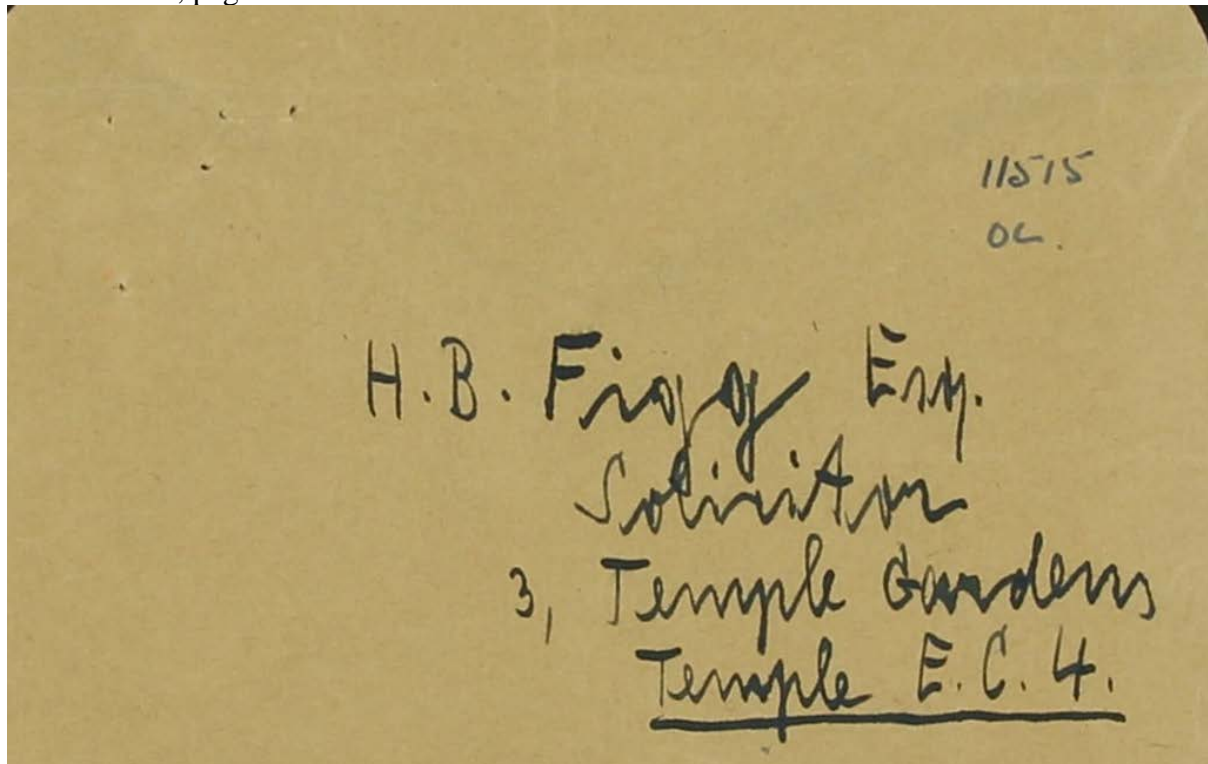 11515
OC.
H.B. Figg Esq.
Solicitor
3, Temple Gardens
Temple E.C.4.